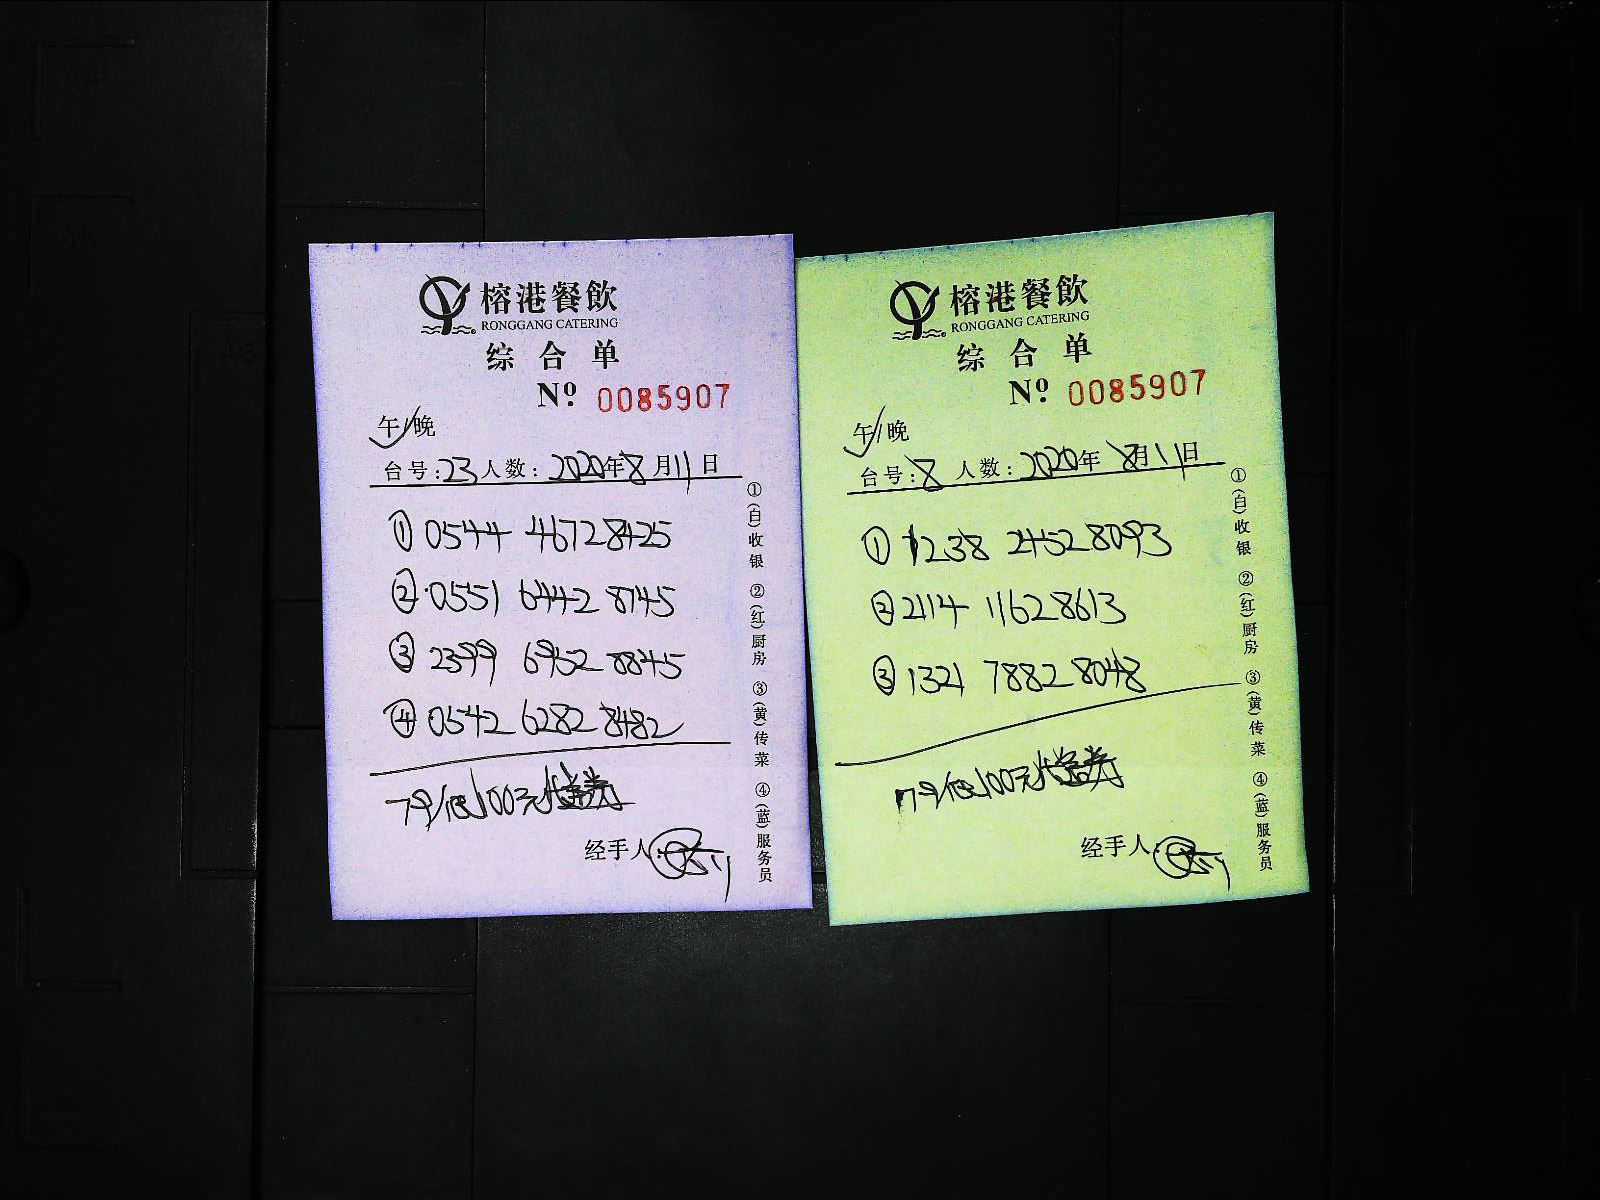 榕港餐飲
RONGGANG CATERING
综合单
Nº 0085907
午/晚
台号:23 人数: 2020年8月11日
① 0544 46728425
② 0551 6442 8745
③ 2399 6952 8845
④ 0542 6282 8482
79/抵100元代金券
经手人:
①(白)收银 ②(红)厨房 ③(黄)传菜 ④(蓝)服务员
榕港餐飲
RONGGANG CATERING
综合单
Nº 0085907
午/晚
台号:8 人数: 2020年8月11日
① 1238 24528093
② 2114 11628613
③ 1321 78828048
79/抵100元代金券
经手人:
①(白)收银 ②(红)厨房 ③(黄)传菜 ④(蓝)服务员